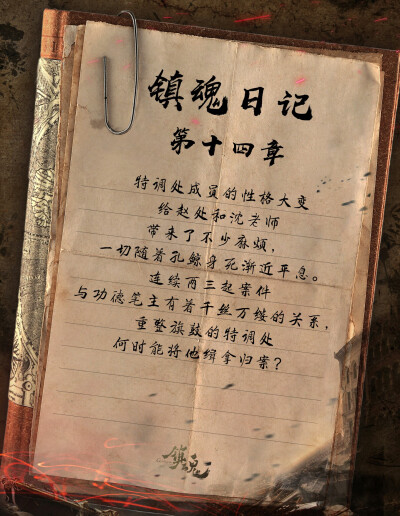 镇魂日记
第十四章
特调处成员的性格大变
给赵处和沈老师
带来了不少麻烦，
一切随着孔鲸身死渐近平息。
连续两三起案件
与功德笔主有着千丝万缕的关系，
重整旗鼓的特调处
何时能将他缉拿归案？
镇魂